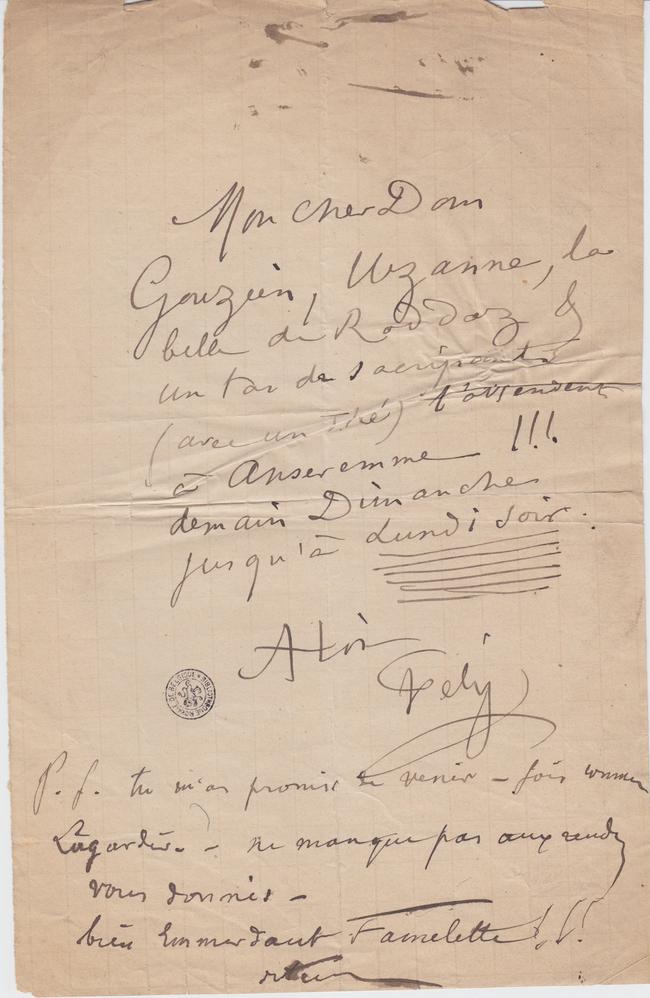 Mon cher Dom
Gouzien, Uzanne, la
belle de Roddaz &
un tas de sacripants
(avec un Thé) t'attendent
à Anseremme !!!
demain Dimanche
jusqu'à Lundi soir.
A toi
Fély
BIBLIOTHEQUE ROYALE DE BELGIQUE
P.S. tu m'as promis de venir – fais comme
Lagardère – ne manque pas aux rendez
vous donnés –
bien Emmerdant Famelette !!!